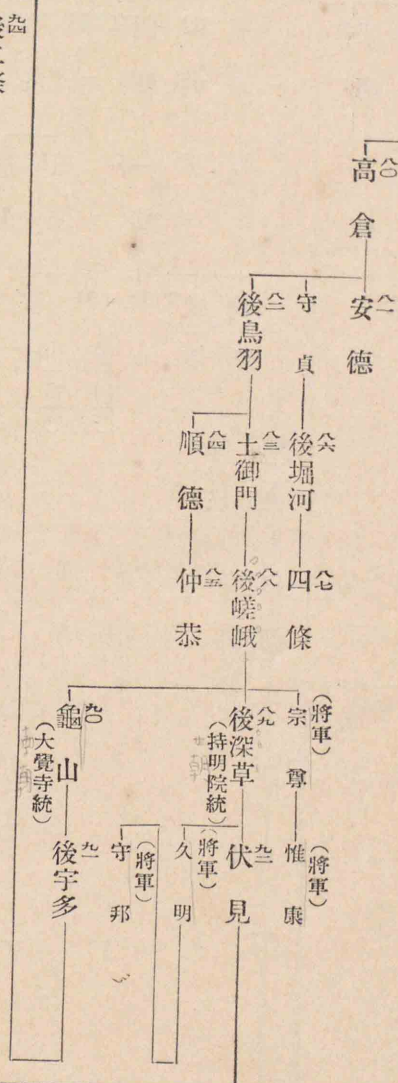 八〇
高倉
八一
安德
守貞
八二
後鳥羽
八六
後堀河
八三
土御門
八四
順德
八七
四條
八八
後嵯峨
八五
仲恭
(將軍)
宗尊
八九
後深草
(持明院統)
九〇
龜山
(大覺寺統)
(將軍)
惟康
九二
伏見
(將軍)
久明
(將軍)
守邦
九一
後宇多
九四